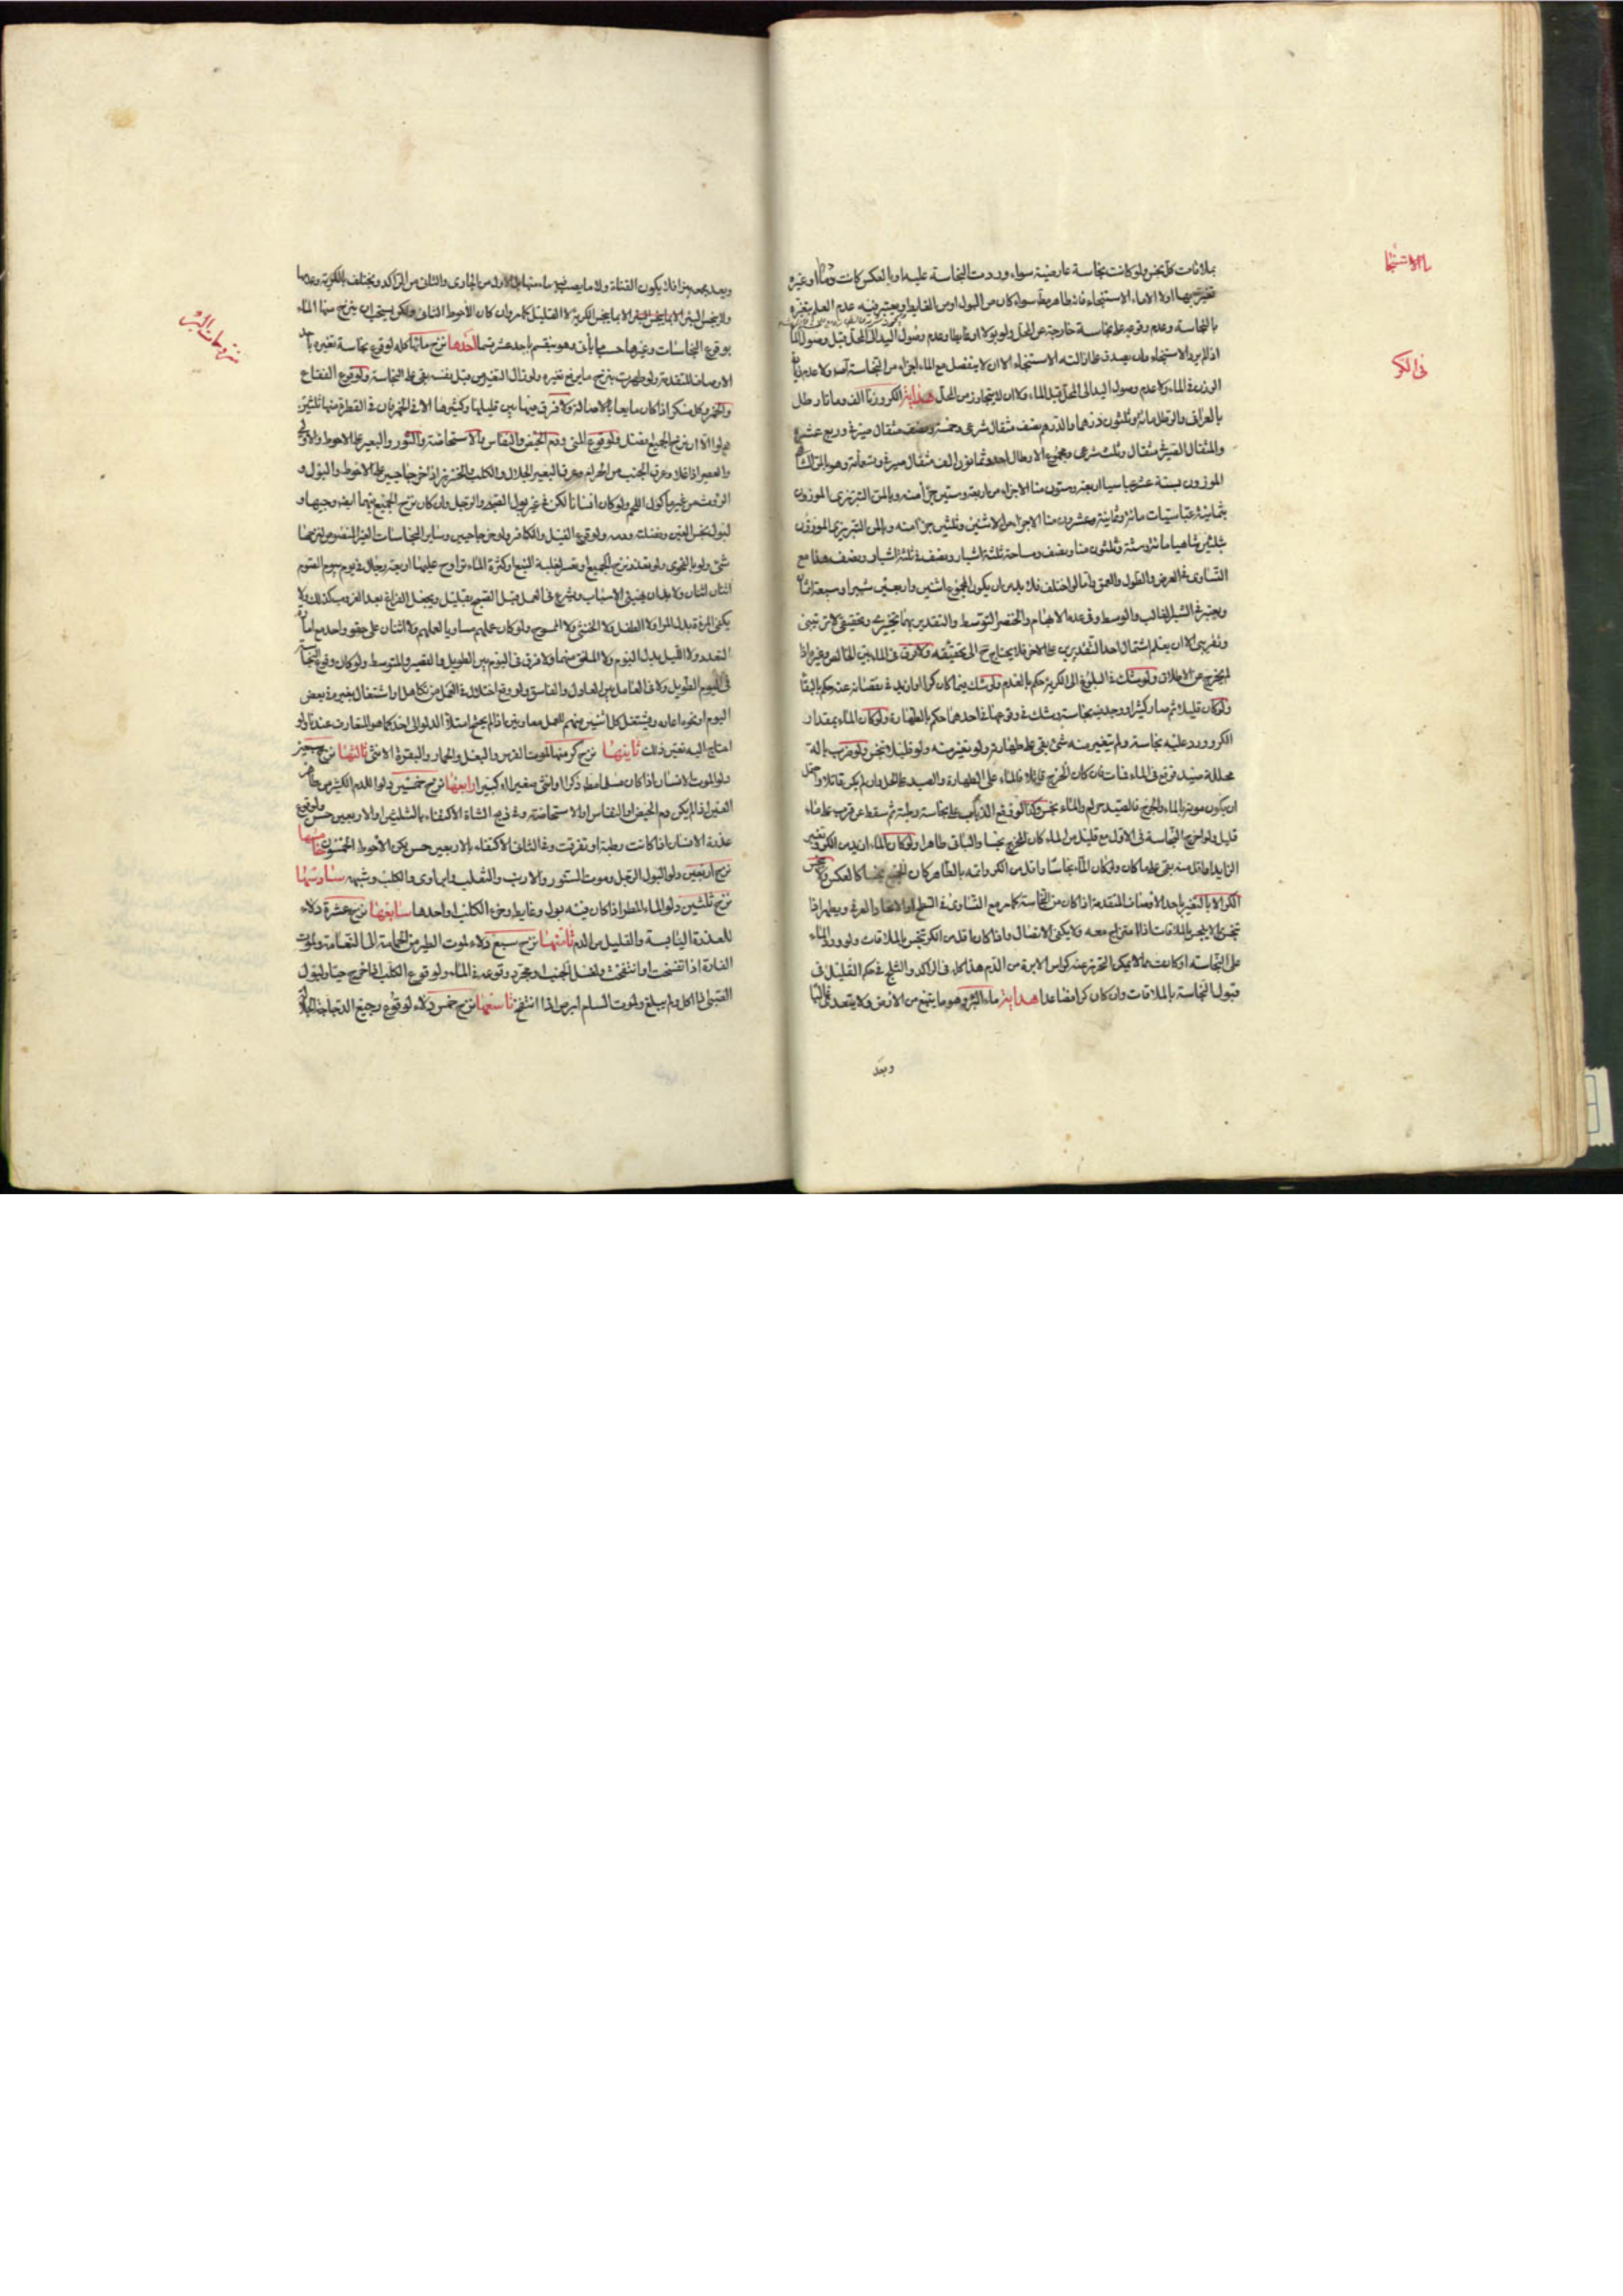 ماء الاستنجا
في الكر
بملاقات كل نجس ولو كانت نجاسة عارضية سواء وردت النجاسة عليه او بالعكس كانت دما او غيره
تغير بها اولا الا ماء الاستنجاء فانه طاهر مطلقا سواء كان من البول او من الغايط ويعتبر فيه عدم العلم بتغيره
بالنجاسة وعدم وقوعه على نجاسة خارجة عن المحل ولو بولا او غايطا وعدم وصول اليد الى المحل قبل وصول الماء
اذا لم يرد الاستنجاء ولن يصدق على ازالته الاستنجاء الا ان لا ينفصل مع الماء اجزاء من النجاسة ولا عدم زيادة
الوزن في الماء ولا عدم وصول اليد الى المحل قبل الماء ولا ان لا يتجاوز من المحل هداية الكر وزنا الف وماتا رطل
بالعراقي والرطل مائة وثلثون درهما والدرهم نصف مثقال شرعي وخمسه ونصف مثقال صيرفي وربع عشره
والمثقال الصيرفي مثقال وثلث شرعي ومجموع الارطال احد وثمانون الف مثقال صيرفي وتسعمائة وهو بالمن الشاهي
الموزون بستة عشر عباسيا اربعة وستون منا الا جزء من اربعة وستين جزأ منه وبالمن التبريزي الموزون
بثمانية عباسيات مائة وثمانية وعشرون منا الا جزء من الاثنين وثلثين جزأ منه وبالمن التبريزي الموزون
بثلثين شاهيا مائة وستة وثلثون منا ونصف ومساحة ثلثة اشبار ونصف في ثلثة اشبار ونصف هذا مع
التساوى في العرض والطول والعمق واما لو اختلف فلا بد من ان يكون المجموع اثنين واربعين شبرا وسبعة اثمان
ويعتبر في الشبر الغالب والوسط وفي عدمه الابهام والخنصر المتوسط والتقدير بهما تخييرى وتحقيقي لا تخمينى
وتقريبى الا ان يعلم اشتمال احد التقديرين على الاخر فلا يحتاج ح الى تحقيقه ولا فرق في الماء بين الخالص وغيره اذا
لم يخرج عن الاطلاق ولو شك في البلوغ الى الكرية حكم بالعدم ولو شك فيما كان كرا او ازيد في نقصانه عنه حكم بالبقاء
ولو كان قليلا ثم صار كثيرا ووجد فيه نجاسة وشك في وقوعها في احدهما حكم بالطهارة ولو كان الماء بمقدار
الكر وورد عليه نجاسة ولم يتغير منه شئ بقي على طهارته ولو تغير منه ولو قليلا تنجس ولو ضرب بالة
محللة صيد فوقع في الماء فمات فان كان الجرح قاتلا فالماء على الطهارة والصيد على الحل وان لم يكن قاتلا واحتمل
ان يكون موته بالماء والجرح فالصيد حرام والماء نجس وكذا لو وقع الذباب على نجاسة رطبة ثم سقط عن قرب على ماء
قليل ولو اخرج النجاسة في الاول مع قليل من الماء كان المخرج نجسا والباقي طاهرا ولو كان الماء ازيد من الكر وتغير
الزايد او اقل منه بقي على ما كان ولو كان الماء نجاسا واقل من الكر واتمه بالطاهر كان المجتمع نجسا كالعكس ولا ينجس
الكر الا بالتغير باحد الاوصاف المتقدمة اذا كان من النجاسة كما مر مع التساوى في السطح او الانحدار العرفي ويطهر اذا
تنجس بما لا ينجس بالملاقات اذا امتزج معه ولا يكفي الاتصال واذا كان اقل من الكر تنجس بالملاقات ولو ورد الماء
على النجاسة او كانت مما لا يمكن التحرز عنه كراس الابرة من الدم هذا كله في الراكد والثلج في حكم القليل في
قبول النجاسة بالملاقات وان كان كرا فصاعدا هداية ماء البئر وهو ما ينبع من الارض ولا يتعدى غالبا
وبعد
منزوحات البئر
ولا ينجس البئر الا بما ينجس الكر لا القليل كما مر وان كان الاحوط الثاني ولكن يستحب ان ينزح منها الماء
بوقوع النجاسات وغيرها حسبما يأتي وهو ينقسم باحد عشر قسما احدها نزح مائها كله لوقوع نجاسة تغيره باحد
الاوصاف المتقدمة ولو طهرت بنزح ما يرفع تغيره ولو زال التغير من قبل نفسه بقي على النجاسة ولوقوع الفقاع
والخمر وكل مسكر اذا كان مايعا بالاصالة ولا فرق فيها بين قليلها وكثيرها الا في الخمر فان في القطرة منها ثلثين
دلوا الا ان نزح الجميع افضل ولوقوع المنى ودم الحيض والنفاس والاستحاضة والثور والبعير على الاحوط والاولى
والعصير اذا غلا وعرق الجنب من الحرام وعرق البعير الجلال والكلب والخنزير اذا خرجا حيين على الاحوط والبول و
الروث من غير مأكول اللحم ولو كان انسانا لكن في غير بول الصبي والرجل وان كان نزح الجميع فيهما ايضا وجيها و
لبول نجس العين وفضلته ودمه ولوقوع الفيل والكافر ولو خرجا حيين وساير النجاسات الغير المنصوص لنزحها
شئ ولو بالفحوى ولو تعذر نزح الجميع او تعسر لغلبة النبع او كثرة الماء تراوح عليها اربعة رجال في يوم يوم الصوم
اثنان اثنان ولا بد ان يهيئ الاسباب ويشرع في العمل قبل الصبح بقليل ويجعل الفراغ بعد الغروب كذلك ولا
يكفي المرءة بدل المرء ولا الطفل ولا الخنثى ولا الممسوح ولو كان عملهم مساويا لعملهم ولا اثنان على حقو واحد مع امكان
التعدد ولا الليل بدل اليوم ولا الملفق منهما ولا فرق في اليوم بين الطويل والقصير والمتوسط ولو كان وقوع النجاسة
في اليوم الطويل ولا في العامل بين العادل والفاسق ولو وقع اختلال في العمل من تكاهل او اشتغال بغيره في بعض
اليوم او نحوه اعاد ويشتغل كل اثنين منهم للعمل معاونين اذا لم يحتج امتلاء الدلو الى احد كما هو المتعارف عندنا ولو
احتاج اليه تعين ذلك ثانيها نزح كر منها لموت الفرس والبغل والحمار والبقرة الانثى ثالثها نزح سبعين
دلوا لموت الانسان اذا كان مسلما مطلقا ذكرا او انثى صغيرا او كبيرا رابعها نزح خمسين دلوا للدم الكثير من طاهر
العين اذا لم يكن دم الحيض او النفاس او الاستحاضة وفي دم الشاة الاكتفاء بالثلثين او الاربعين حسن ولوقوع
عذرة الانسان اذا كانت رطبة او تفرقت وفي الثاني الاكتفاء بالاربعين حسن لكن الاحوط الخمسون خامسها
نزح اربعين دلوا لبول الرجل وموت السنور والارنب والثعلب وابن اوى والكلب وشبهه سادسها
نزح ثلثين دلوا لماء المطر اذا كان فيه بول وغايط وخرء الكلب او احدها سابعها نزح عشرة دلاء
للعذرة اليابسة والقليل من الدم ثامنها نزح سبع دلاء لموت الطير من الحمامة الى النعامة ولموت
الفارة اذا تفسخت او انتفخت ولغسل الجنب او مجرد وقوعه في الماء ولوقوع الكلب اذا خرج حيا ولبول
الصبي اذا اكل ولم يبلغ ولموت السام ابرص اذا انتفخ تاسعها نزح خمس دلاء لوقوع رجيع الدجاجة الجلالة